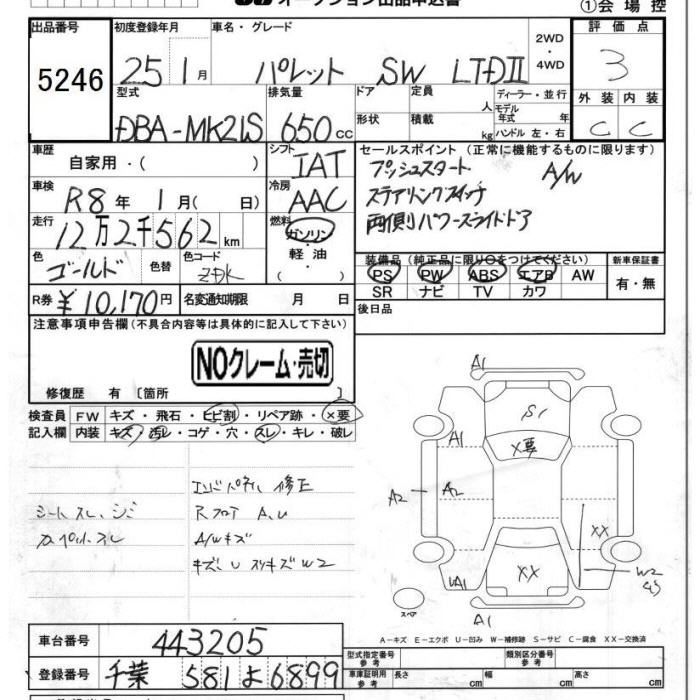 オークション出品申込書 ①会場控
出品番号 初度登録年月 車名・グレード 2WD・4WD 評価点
5246 25 1月 パレット SW LTDII 3
型式 排気量 ドア 定員 人 ディーラー・並行 外装 内装
DBA-MK21S 650cc 形状 積載 kg モデル年式 年 ハンドル 左・右 C C
車歴 自家用・( ) シフト IAT セールスポイント (正常に機能するものに限ります)
プッシュスタート A/W
車検 R8年 1月( 日) 冷房 AAC ステアリングスイッチ
両側パワースライドドア
走行 12万2千562km 燃料 ガソリン・軽油・( )
色 ゴールド 色替 色コード 装備品 (純正品に限り○をつけてください) 新車保証書
PS PW ABS エアB AW 有・無
SR ナビ TV カワ
R券 ¥10,170円 名変通知期限 月 日 後日品
注意事項申告欄(不具合内容等は具体的に記入して下さい)
NOクレーム・売切
修復歴 有 [箇所 ]
検査員記入欄 FW キズ・飛石・ヒビ割・リペア跡・×要
内装 キズ・汚レ・コゲ・穴・スレ・キレ・破レ
エンドパネル 修正
シートスレ、シミ Rフロア A、U
カーペットスレ A/Wキズ
キズ、U スリキズ W2
A1
S1
A1 ×要
A2 A2
XX
XX W2
UA1
A1
スペア
A-キズ E-エクボ U-凹み W-補修跡 S-サビ C-腐食 XX-交換済
車台番号 443205
型式指定番号 参考 類別区分番号 参考
登録番号 千葉 581 よ 6899 車庫証明用 参考 長さ cm 幅 cm 高さ cm